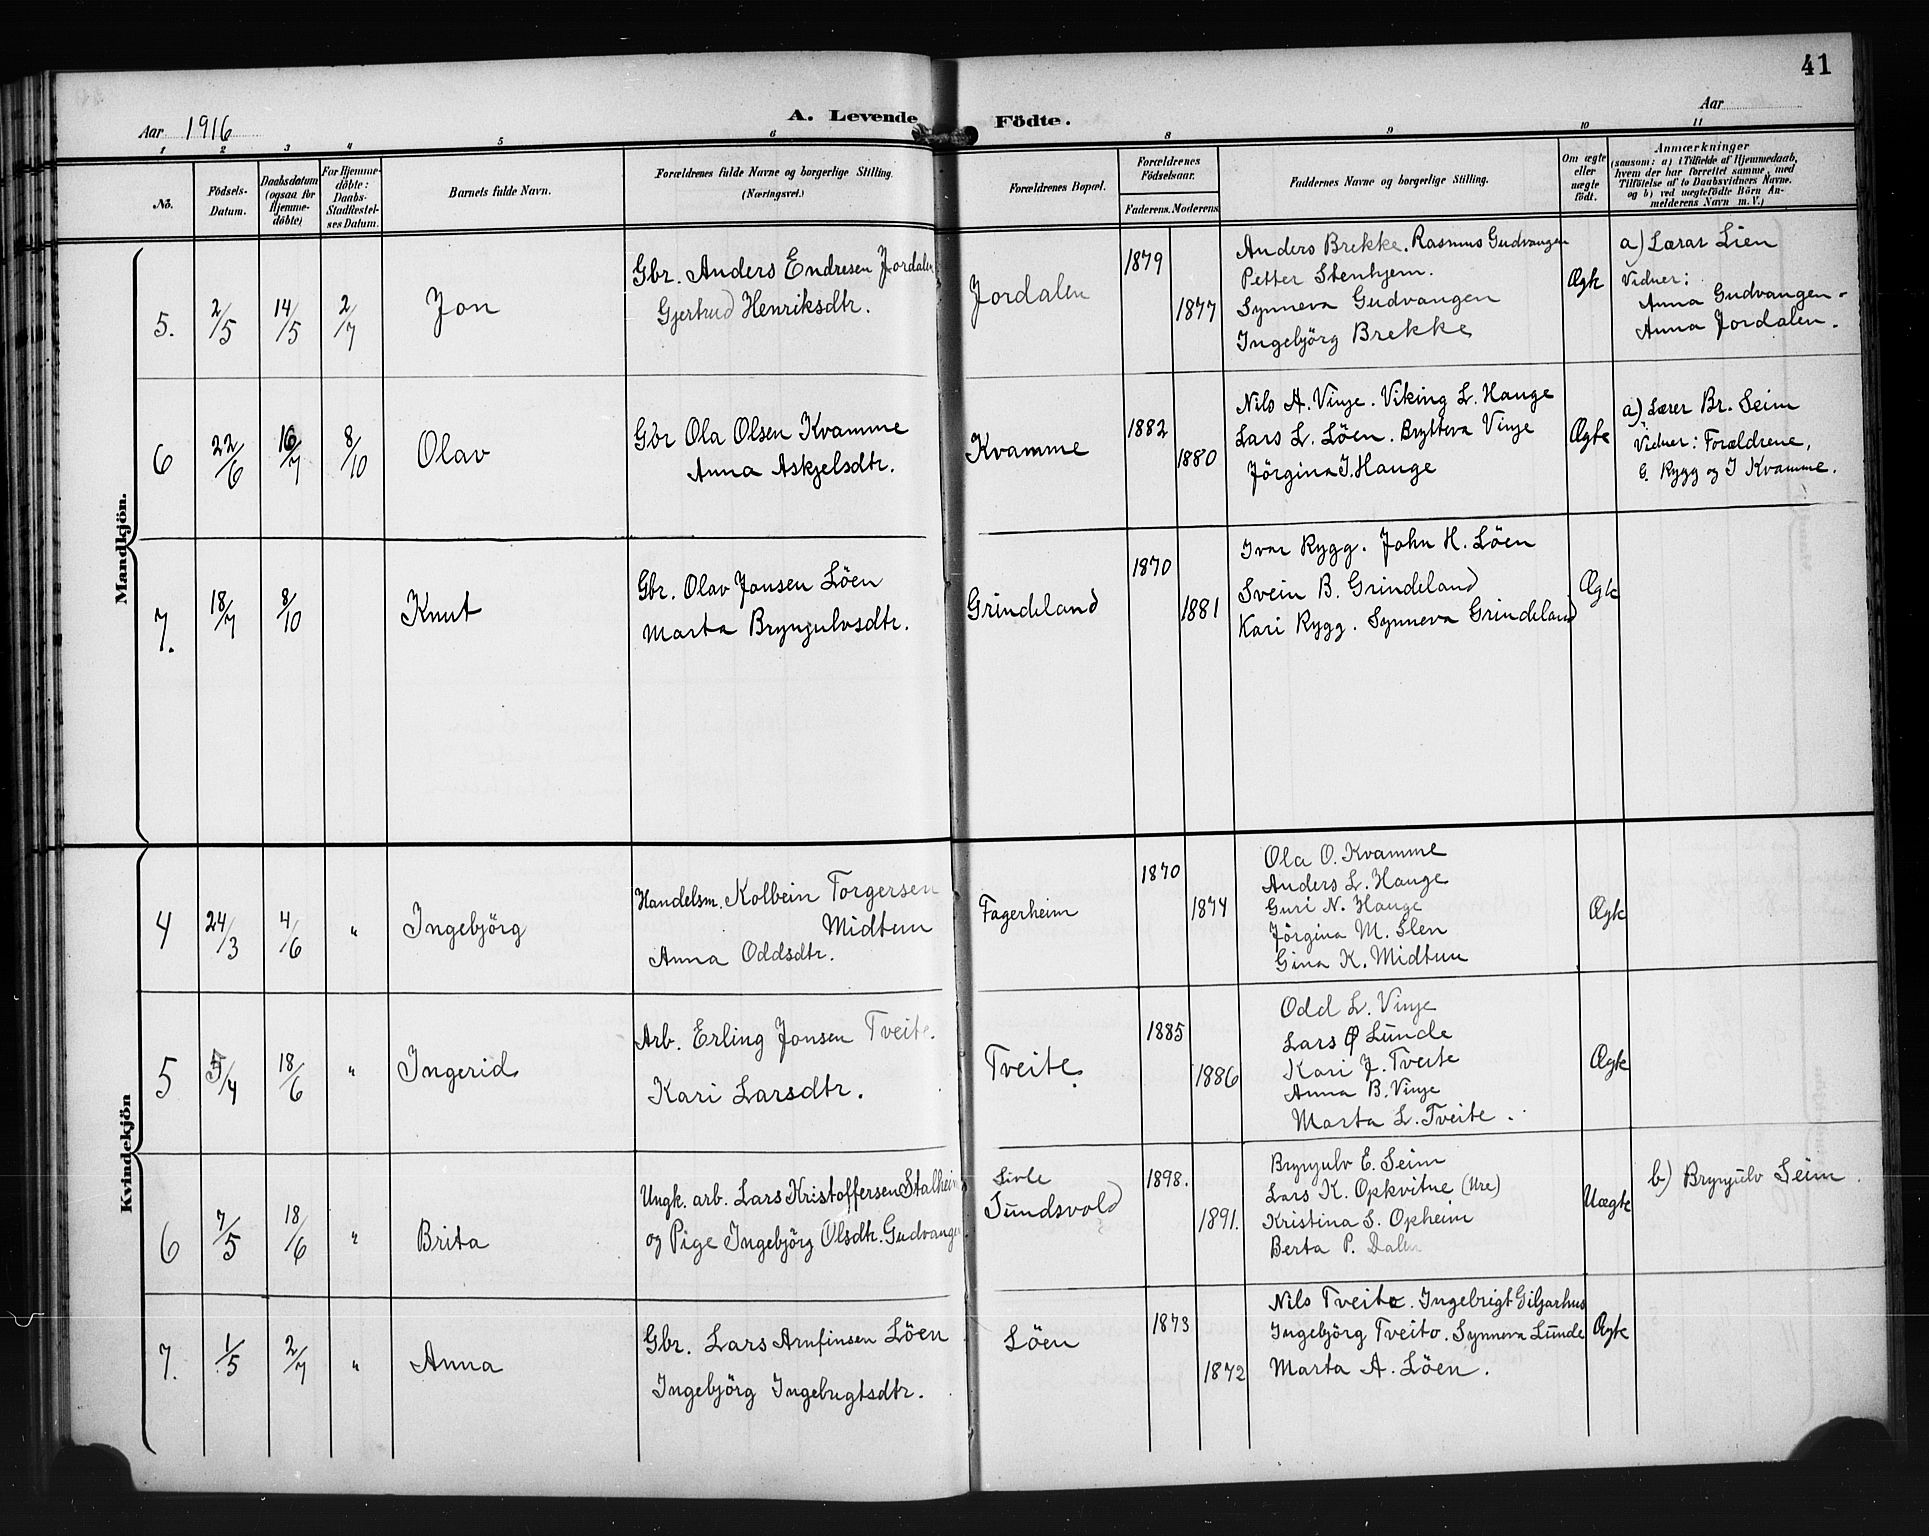 41
Aar 1916
A. Levende Födte.
Aar
1 2 3 4 5 6 8 9 10 11
No.
Födsels-Datum.
Daabsdatum (ogsaa for Hjemmedöbte)
For Hjemmedöbte: Daabs-Stadfestelses Datum.
Barnets fulde Navn.
Forældrenes fulde Navne og borgerlige Stilling. (Næringsvei.)
Forældrenes Bopæl.
Forældrenes Födselsaar.
Faderens. Moderens.
Faddernes Navne og borgerlige Stilling.
Om ægte eller uægte födt.
Anmærkninger
(saasom: a) i Tilfælde af Hjemmedaab, hvem der har forrettet samme, med Tilföielse af to Daabsvidners Navne. og b) ved uægtefödte Börn Anmelderens Navn m. V.)
Mandkjön.
5. 2/5 14/5 2/7 Jon
Gbr. Anders Endresen Jordalen
Gjertrud Henriksdtr.
Jordalen
1879
1877
Anders Brekke. Rasmus Gudvangen
Petter Stenhjem.
Synneva Gudvangen
Ingebjörg Brekke
Ægte
a) Lærar Lien
Vidner:
Anna Gudvangen
Anna Jordalen.
6 22/6 16/7 8/10 Olav
Gbr Ola Olsen Kvamme
Anna Askjelsdtr.
Kvamme
1882
1880
Nils A. Vinje. Viking L. Hauge
Lars L. Löen. Brytteva Vinje
Jörgina I. Hauge
Ægte
a) Lærer Br. Seim
Vidner: Forældrene,
G. Rygg og I Kvamme.
7. 18/7 8/10 Knut
Gbr. Olav Jonsen Löen
Marta Brynjulvsdtr.
Grindeland
1870
1881
Ivar Rygg. John H. Löen
Svein B. Grindeland
Kari Rygg. Synneva Grindeland
Ægte
Kvindekjön
4 24/3 4/6 " Ingebjörg
Handelsm. Kolbein Torgersen
Midtun
Anna Oddsdtr.
Fagerheim
1870
1874
Ola O. Kvamme
Anders L. Hauge
Guri N. Hauge
Jörgina M. Slen
Gina K. Midtun
Ægte
5 /4 18/6 " Ingerid
Arb. Erling Jonsen Tveite.
Kari Larsdtr.
Tveite.
1885
1886
Odd L. Vinje
Lars Ø Lunde
Kari J. Tveite
Anna B. Vinje
Marta L. Tveite.
Ægte
6 7/5 18/6 " Brita
Ungk. arb. Lars Kristoffersen Stalheim
og Pige Ingebjörg Olsdtr. Gudvangen
Sivle
Sundsvold
1898.
1891.
Brynjulv E. Seim
Lars K. Opkvitne (Ure)
Kristina S. Opheim
Berta P. Dalen
Uægte
b) Brynjulv Seim.
7. 1/5 2/7 " Anna
Gbr. Lars Arnfinsen Löen
Ingebjörg Ingebrigtsdtr.
Löen
1873
1872
Nils Tveite. Ingebrigt Giljarhus
Ingebjörg Tveito. Synneva Lunde
Marta A. Löen.
Ægte